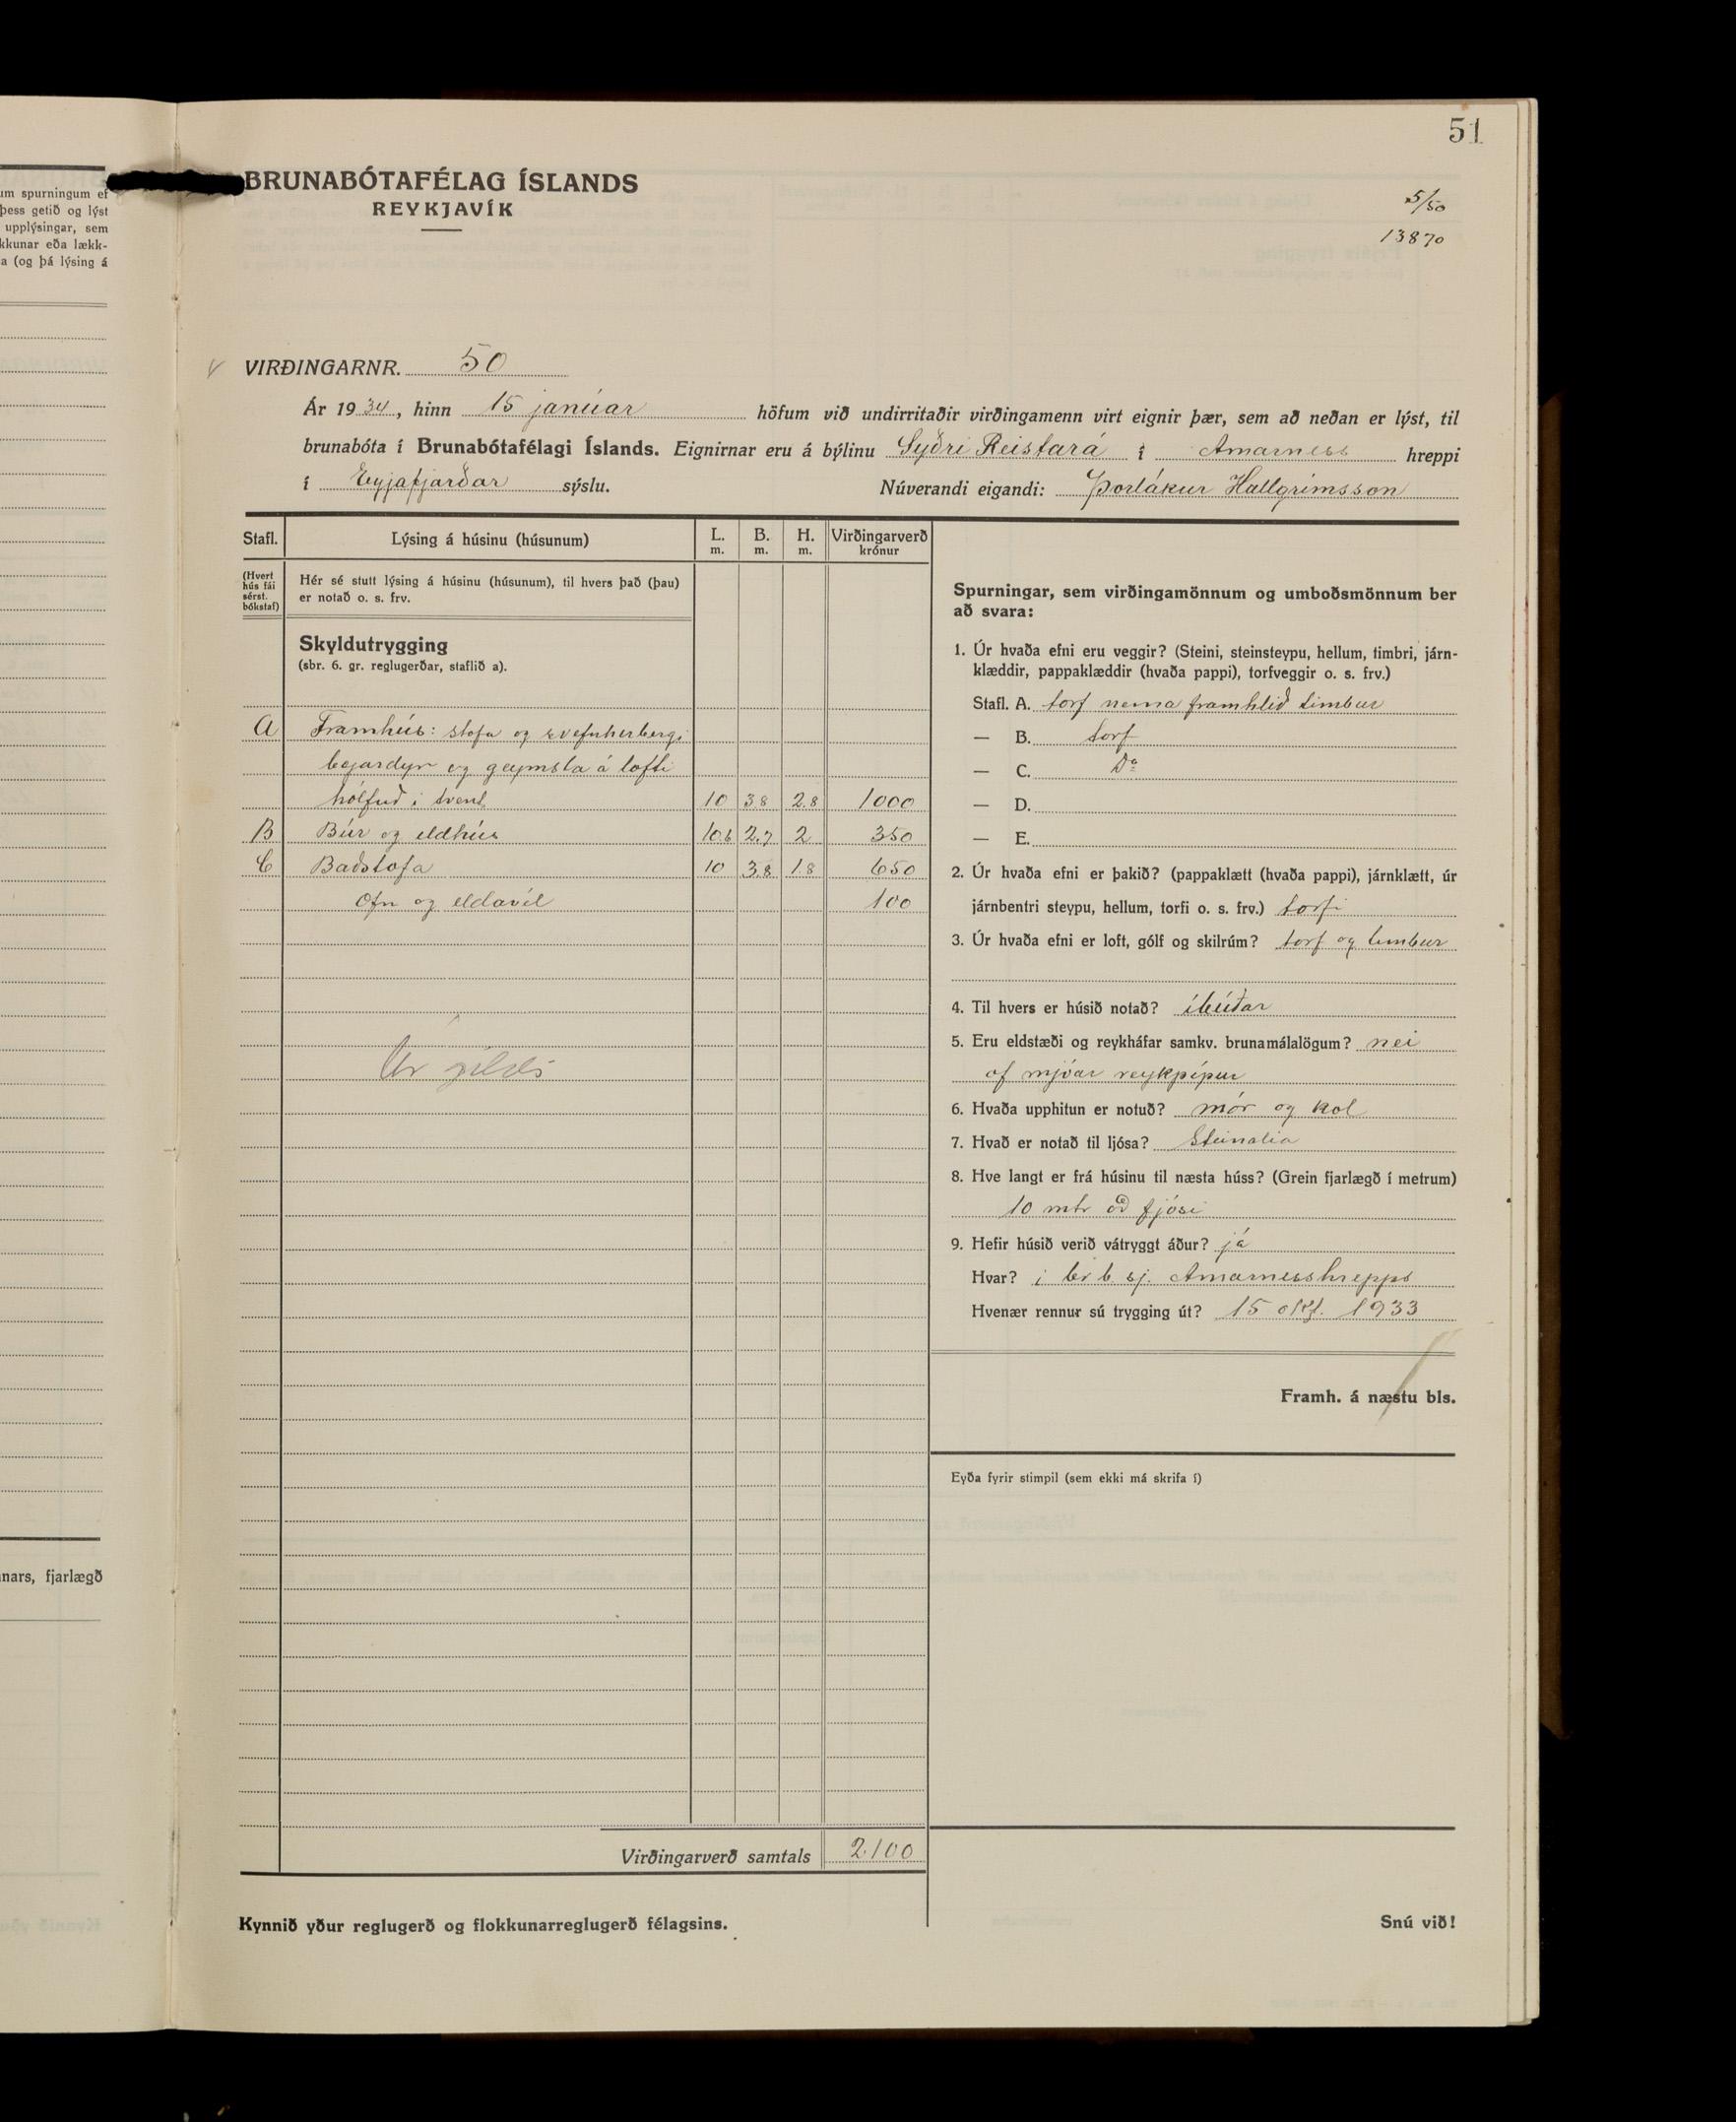 51
um spurningum ef
þess getið og lýst
upplýsingar, sem
kkunar eða lækk-
a (og þá lýsing á
nars, fjarlægð
BRUNABÓTAFÉLAG ÍSLANDS
REYKJAVÍK
5/50
13870
VIRÐINGARNR. 50
Ár 1934, hinn 15 janúar höfum við undirritaðir virðingamenn virt eignir þær, sem að neðan er lýst, til
brunabóta í Brunabótafélagi Íslands. Eignirnar eru á býlinu Syðri Reistará í Arnarness hreppi
í Eyjafjarðar sýslu. Núverandi eigandi: Þorlákur Hallgrímsson
Stafl. Lýsing á húsinu (húsunum) L. m. B. m. H. m. Virðingarverð krónur
(Hvert hús fái sérst. bókstaf)
Hér sé stutt lýsing á húsinu (húsunum), til hvers það (þau)
er notað o. s. frv.
Skyldutrygging
(sbr. 6. gr. reglugerðar, staflið a).
A Framhús: stofa og svefnherbergi
bæjardyr og geymsla á lofti
hólfuð i tvent 10 3.8 2.8 1000
B Búr og eldhús 10.6 2.7 2 350
C Baðstofa 10 3.8 1.8 650
Ofn og eldavél 100
Úr gildi
Virðingarverð samtals 2100
Kynnið yður reglugerð og flokkunarreglugerð félagsins.
Spurningar, sem virðingamönnum og umboðsmönnum ber
að svara:
1. Úr hvaða efni eru veggir? (Steini, steinsteypu, hellum, timbri, járn-
klæddir, pappaklæddir (hvaða pappi), torfveggir o. s. frv.)
Stafl. A. torf nema framhlið timbur
— B. torf
— C. Do
— D.
— E.
2. Úr hvaða efni er þakið? (pappaklætt (hvaða pappi), járnklætt, úr
járnbentri steypu, hellum, torfi o. s. frv.) torfi
3. Úr hvaða efni er loft, gólf og skilrúm? torf og timbur
4. Til hvers er húsið notað? íbúðar
5. Eru eldstæði og reykháfar samkv. brunamálalögum? nei
of mjóar reykpípur
6. Hvaða upphitun er notuð? mór og kol
7. Hvað er notað til ljósa? Steinolia
8. Hve langt er frá húsinu til næsta húss? (Grein fjarlægð í metrum)
10 mtr að fjósi
9. Hefir húsið verið vátryggt áður? já
Hvar? i br. b. sj. Arnarnesshrepps
Hvenær rennur sú trygging út? 15 okt. 1933
Framh. á næstu bls.
Eyða fyrir stimpil (sem ekki má skrifa í)
Snú við!